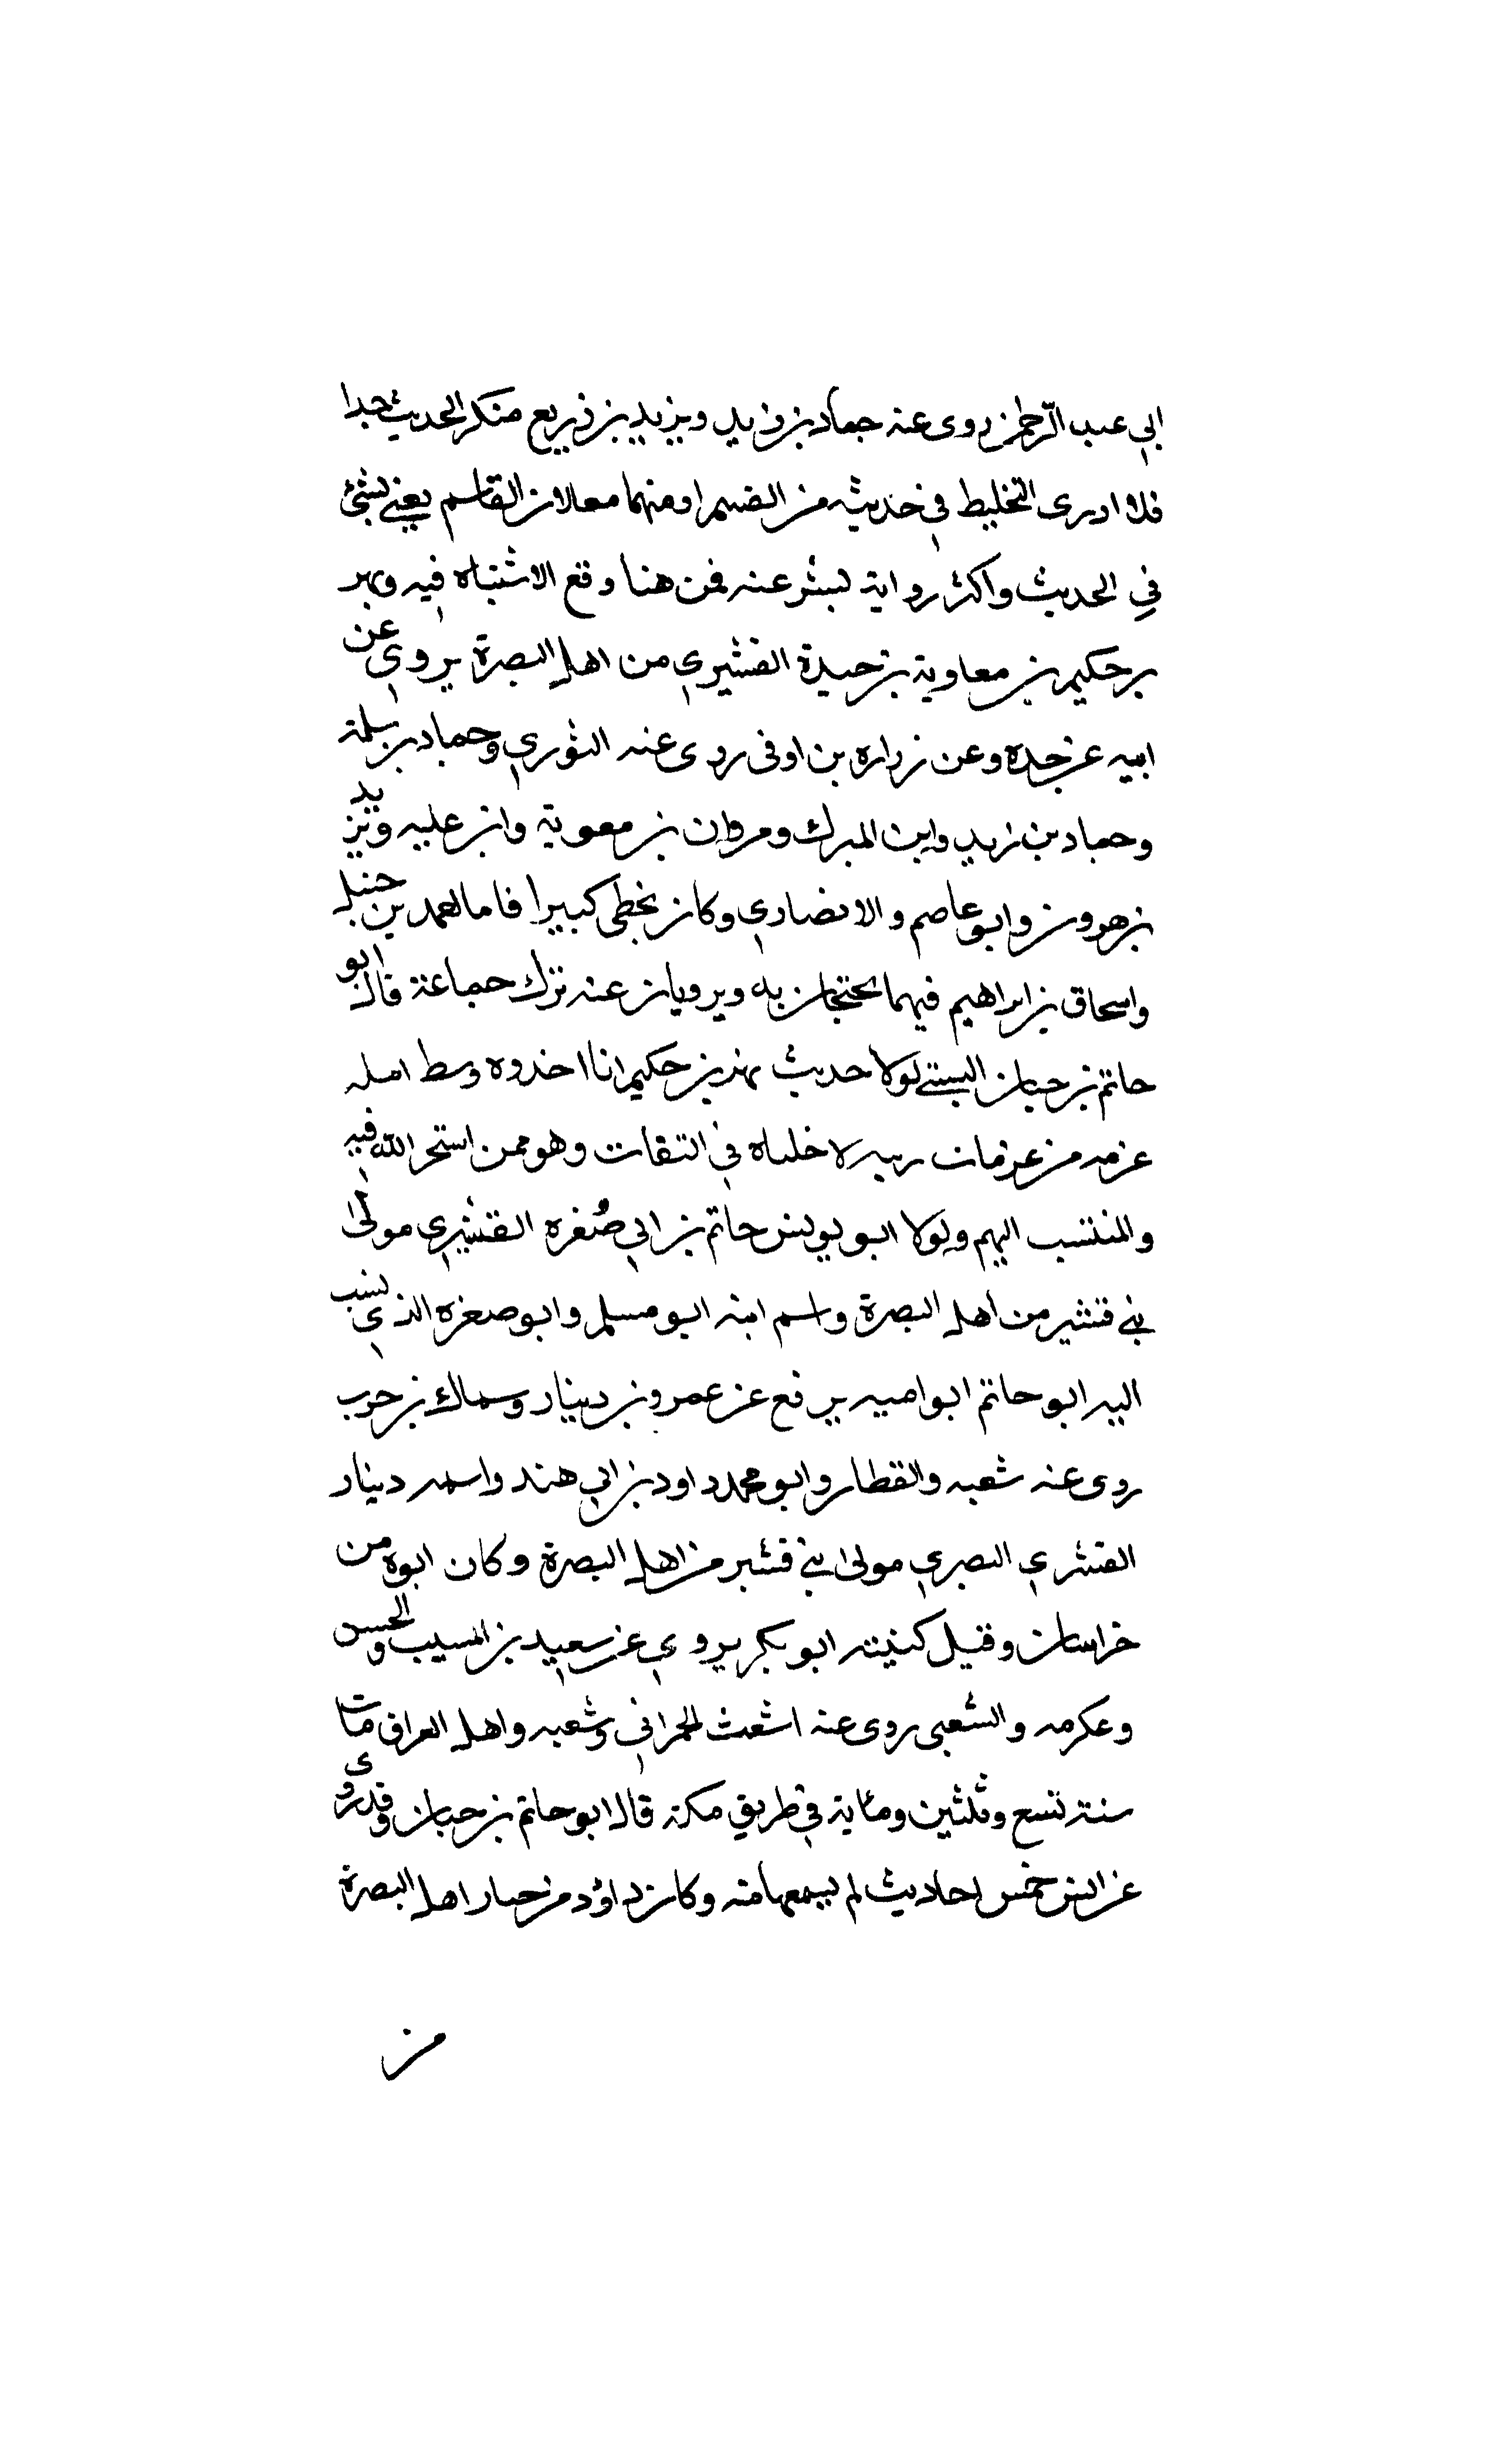 ابي عبد الرحمن روى عنه حماد بن زيد ويزيد بن زريع منكر الحديث جدا
فلا ادرى التخليط في حديثه من القسم اومنهما معالان القاسم يعني بشئ
في الحديث واكثر رواية لبشر عنه فمن هنا وقع الاشتباه فيه وبهز
بن حكيم بن معاوية بن حيدة القشيري من اهل البصرة يروي عن
ابيه عن جده وعن زراره بن اوفى روى عنه الثوري وحماد بن سلمة
وحماد بن زيد وابن المبرك ومروان بن معوية وابن عليه ويزيد
بن هرون وابو عاصم والانصاري وكان يخطى كبيرا فاما احمد بن حنبل
واسحاق بن ابراهيم فيهما يحتجان به ويرويان عنه ترك جماعة قال ابو
حاتم بن حبان البستي لولا حديث بهز بن حكيم انا اخذوه وسط امله
عزمه من عزمات ربه لا خلناه في الثقات وهو ممن استحر الله فيه
والمنتسب اليهم ولولا ابو يونس حاتم بن ابي صُغره القشيري مولى
بني قشير من اهل البصرة واسم ابنه ابو مسلم وابو صغره الذي نسب
اليه ابو حاتم ابو اميه يرفع عن عمرو بن دينار وسماك بن حرب
روى عنه شعبه والقطار وابو محمد داود بن ابي هند واسمه دينار
القشري البصري مولى بني قشير من اهل البصرة وكان ابوه من
خراسان وقيل كنيته ابو بكر يروي عن سعيد بن المسيب والحسن
وعكرمه والشعبى روى عنه اشعث الحمراني وشعبه واهل العراق مات
سنة تسع وثلثين ومائة في طريق مكة قال ابو حاتم بن حبان وقد روى
عن انس خمس احاديث لم يسمعها منه وكان داؤد من خيار اهل البصرة
من